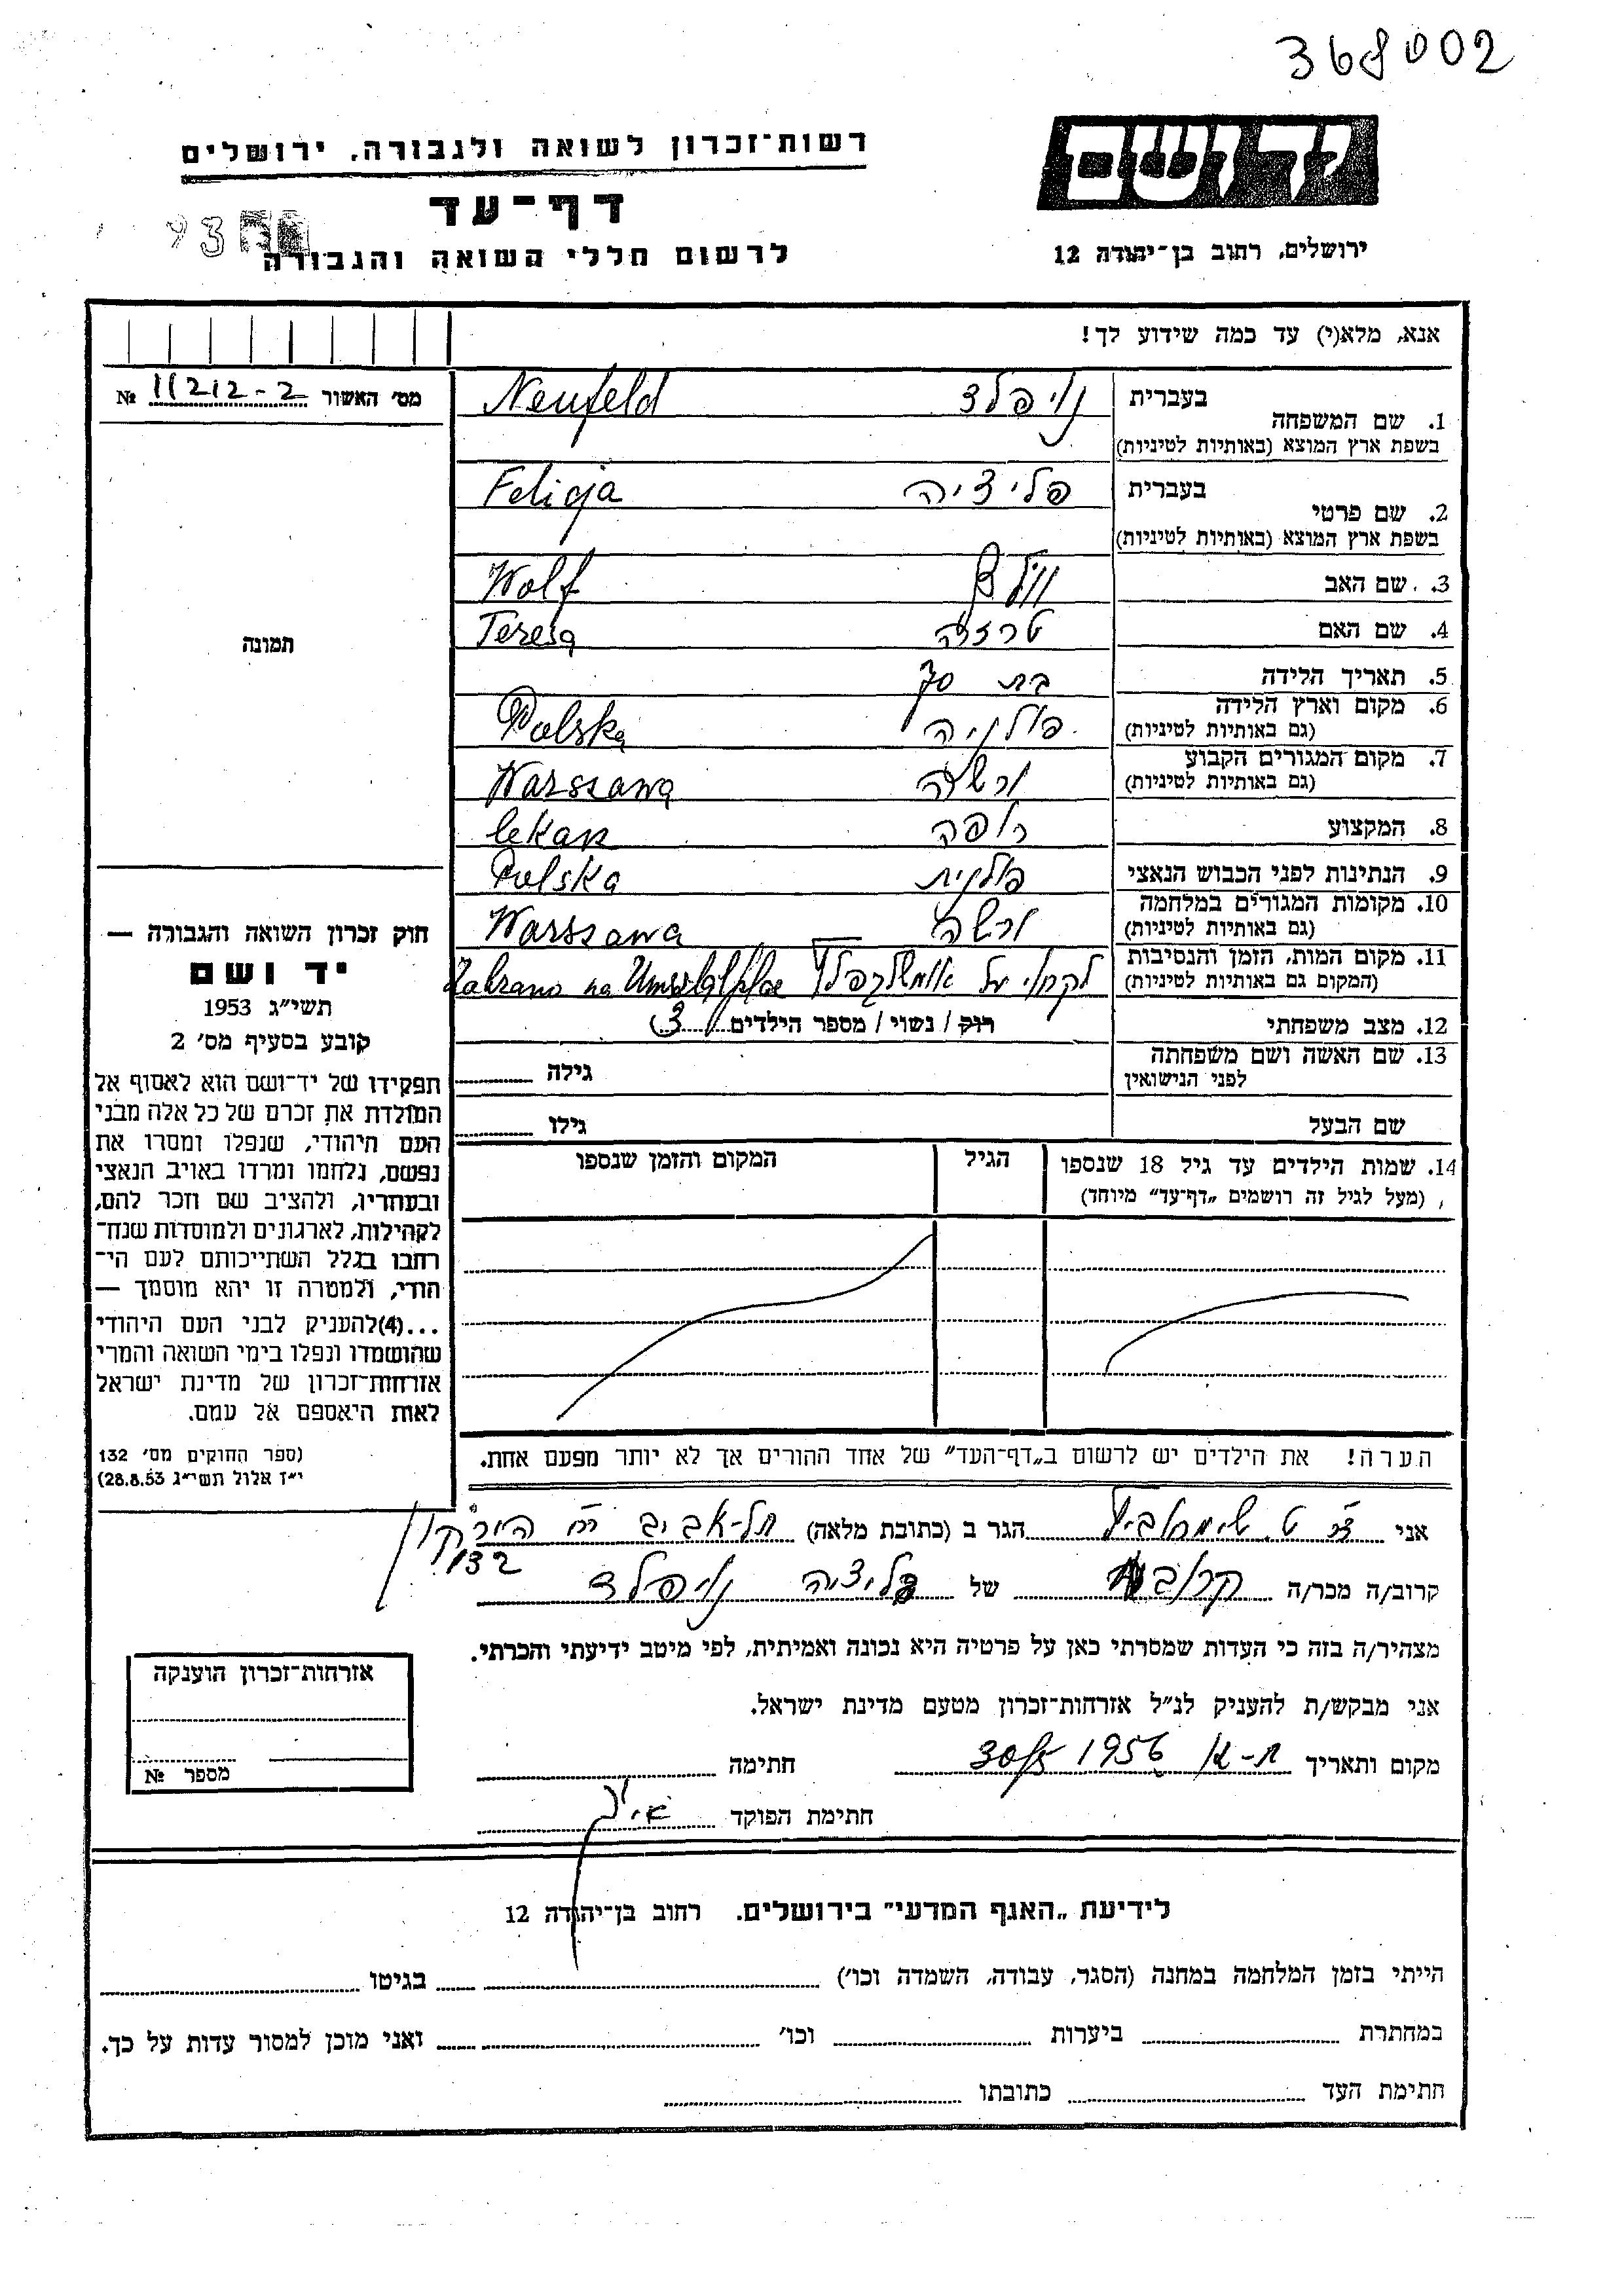 368002
יד ושם
רשות־זכרון לשואה ולגבורה, ירושלים
דף־עד
לרשום חללי השואה והגבורה
93
ירושלים, רחוב בן־יהודה 12
אנא, מלא(י) עד כמה שידוע לך!
מס׳ האשור 11212-2 №
תמונה
1. שם המשפחה בעברית נויפלד Neufeld
בשפת ארץ המוצא (באותיות לטיניות)
2. שם פרטי בעברית פליציה Felicja
בשפת ארץ המוצא (באותיות לטיניות)
3. שם האב וולף Wolf
4. שם האם טרזה Teresa
5. תאריך הלידה בת 70
6. מקום וארץ הלידה פולניה Polska
(גם באותיות לטיניות)
7. מקום המגורים הקבוע ורשה Warszawa
(גם באותיות לטיניות)
8. המקצוע רופה lekarz
9. הנתינות לפני הכבוש הנאצי פולנית Polska
10. מקומות המגורים במלחמה ורשה Warszawa
(גם באותיות לטיניות)
11. מקום המות, הזמן והנסיבות Zabrano na Umszlagplac
(המקום גם באותיות לטיניות)
12. מצב משפחתי רוק / נשוי / מספר הילדים 3
13. שם האשה ושם משפחתה גילה
לפני הנישואין
שם הבעל גילו
14. שמות הילדים עד גיל 18 שנספו הגיל המקום והזמן שנספו
(מעל לגיל זה רושמים „דף־עד״ מיוחד)
הערה! את הילדים יש לרשום ב„דף־העד״ של אחד ההורים אך לא יותר מפעם אחת.
חוק זכרון השואה והגבורה —
יד ושם
תשי״ג 1953
קובע בסעיף מס׳ 2
תפקידו של יד־ושם הוא לאסוף אל
המולדת את זכרם של כל אלה מבני
העם היהודי, שנפלו ומסרו את
נפשם, נלחמו ומרדו באויב הנאצי
ובעוזריו, ולהציב שם וזכר להם,
לקהילות, לארגונים ולמוסדות שנח־
רבו בגלל השתייכותם לעם הי־
הודי, ולמטרה זו יהא מוסמך —
...(4)להעניק לבני העם היהודי
שהושמדו ונפלו בימי השואה והמרי
אזרחות־זכרון של מדינת ישראל
לאות היאספם אל עמם.
(ספר החוקים מס׳ 132
י״ז אלול תשי״ג 28.8.53)
אני הגר ב (כתובת מלאה) תל-אביב רח הירקון
132
קרוב/ה מכר/ה קרובה של פליציה נויפלד
מצהיר/ה בזה כי העדות שמסרתי כאן על פרטיה היא נכונה ואמיתית, לפי מיטב ידיעתי והכרתי.
אני מבקש/ת להעניק לנ״ל אזרחות־זכרון מטעם מדינת ישראל.
מקום ותאריך ת-א 1956 חתימה
חתימת הפוקד
אזרחות־זכרון הוענקה
מספר №
לידיעת „האגף המדעי״ בירושלים. רחוב בן־יהודה 12
הייתי בזמן המלחמה במחנה (הסגר, עבודה, השמדה וכו׳) בגיטו
במחתרת ביערות וכו׳ ואני מוכן למסור עדות על כך.
חתימת העד כתובתו